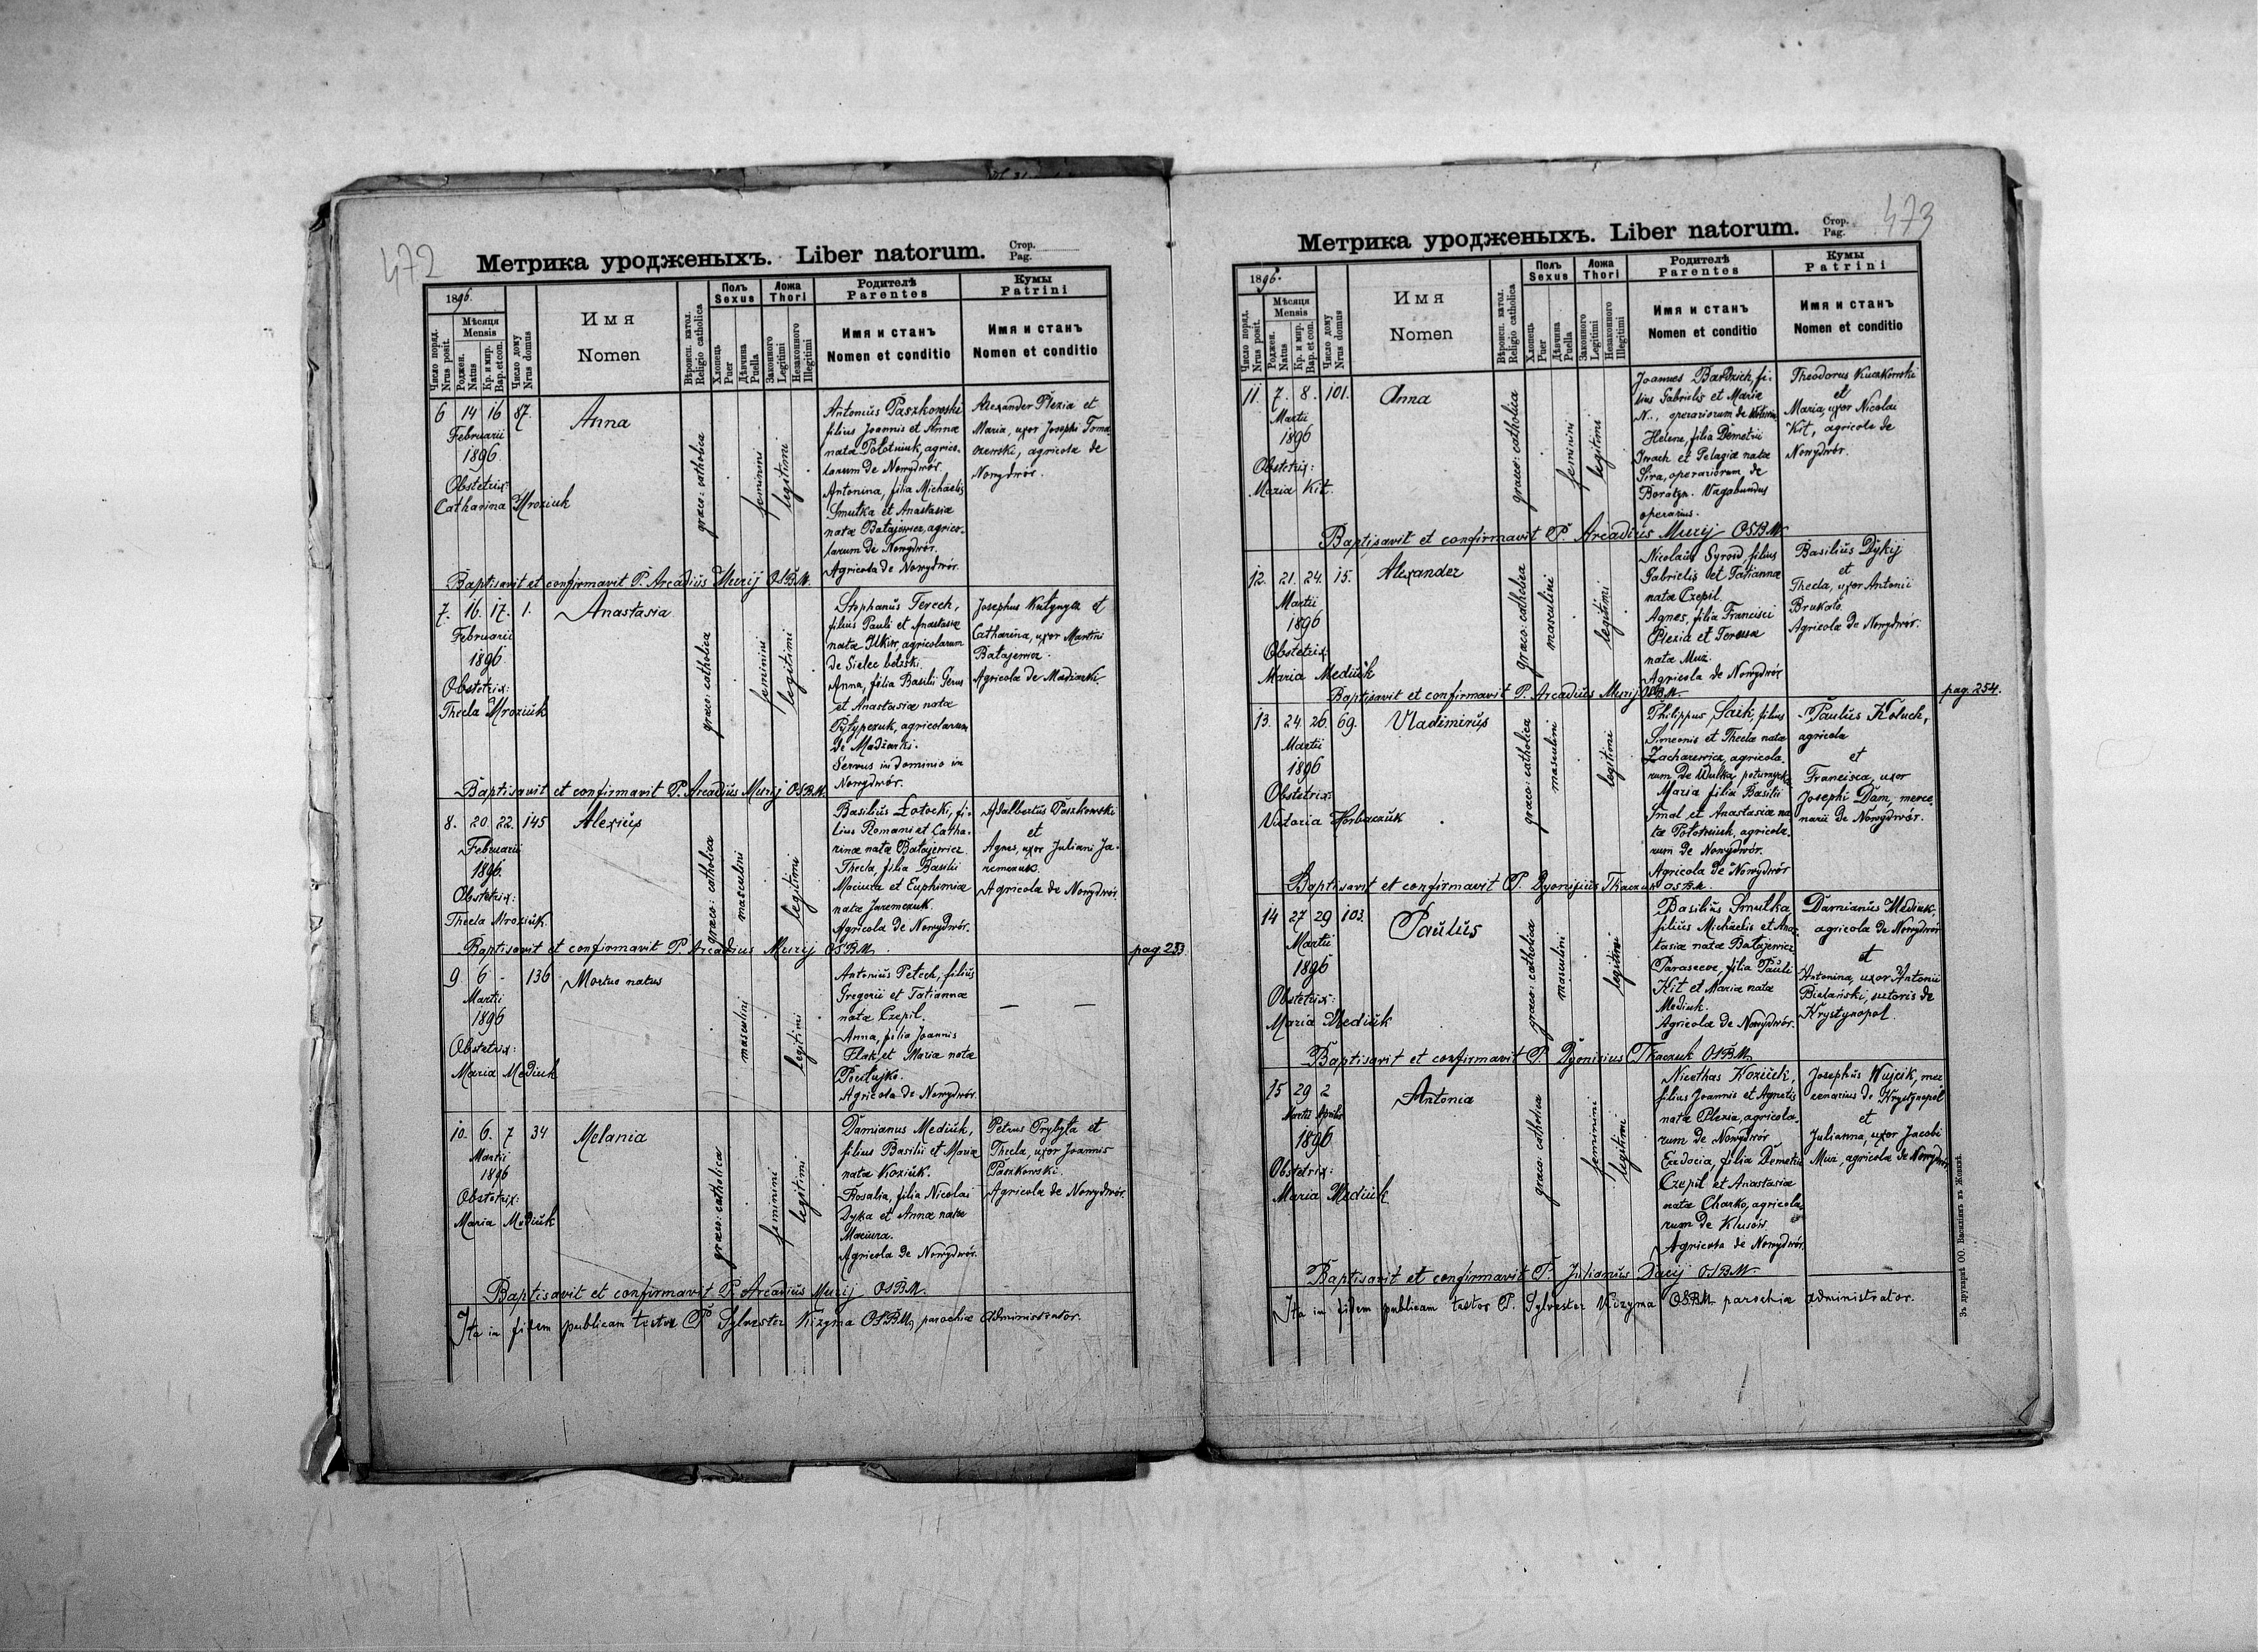 472
Метрика уродженыхъ. Liber natorum.
Стор.
Pag.
1896.
Число поряд.
Nrus posit.
Мѣсяця
Mensis
Роджен.
Natus
Кр. и мир.
Bap. et con.
Число дому
Nrus domus
Имя
Nomen
Вѣроисп. катол.
Religio catholica
Полъ
Sexus
Хлопець
Puer
Дѣвчина
Puella
Ложа
Thori
Законного
Legitimi
Незаконного
Illegitimi
Родителѣ
Parentes
Имя и станъ
Nomen et conditio
Кумы
Patrini
Имя и станъ
Nomen et conditio
6 14 16 87.
Februarii
1896.
Obstetrix:
Catharina Mroziuk
Anna
graeco: catholica
feminini
legitimi
Antonius Paszkowski
filius Joannis et Annæ
natæ Połotniuk, agrico-
larum de Nowydwór.
Antonina, filia Michaelis
Smutka et Anastasiæ
natæ Batajewicz, agrico-
larum de Nowydwór.
Agricola de Nowydwór.
Alexander Plezia et
Maria, uxor Josephi Toma
szewski, agricolæ de
Nowydwór.
Baptisavit et confirmavit P. Arcadius Murij OSBM.
7. 16. 17. 1.
Februarii
1896.
Obstetrix:
Thecla Mroziuk
Anastasia
graeco: catholica
feminini
legitimi
Stephanus Terech,
filius Pauli et Anastasiæ
de Sielec bełzski.
Anna, filia Basilii Gerus
et Anastasiæ natæ
Pyłypczuk, agricolarum
de Madziarki.
Servus in dominio in
Nowydwór.
Josephus Kułynycz et
Catharina, uxor Martini
Batajewicz.
Agricolæ de Madziarki.
Baptisavit et confirmavit P. Arcadius Murij OSBM.
8. 20. 22. 145
Februarii
1896.
Obstetrix:
Thecla Mroziuk.
Alexius
graeco: catholica
masculini
legitimi
Basilius Łotocki, fi-
lius Romani et Catha-
rinæ natæ Batajewicz.
Thecla, filia Basilii
Maciura et Euphimiæ
natæ Jaremczuk.
Agricola de Nowydwór.
Adalbertus Paszkowski
et
Agnes, uxor Juliani Ja-
remczuk.
Agricolæ de Nowydwór.
Baptisavit et confirmavit P. Arcadius Murij OSBM.
pag. 253
9 6 - 136
Martii
1896
Obstetrix:
Maria Mediuk
Mortuo natus
masculini
legitimi
Antonius Petech, filius
Gregorii et Tatiannæ
natæ Czepil.
Anna, filia Joannis
Flak, et Mariæ natæ
Agricola de Nowydwór.
— —
10. 6. 7 34
Martii
1896
Obstetrix:
Maria Mediuk
Melania
graeco: catholica
feminini
legitimi
Damianus Mediuk,
filius Basilii et Mariæ
natæ Koziuk.
Rosalia, filia Nicolai
Dyka et Annæ natæ
Maciura.
Agricola de Nowydwór.
Petrus Prylyta et
Thecla, uxor Joannis
Paszkowski.
Agricolæ de Nowydwór.
Baptisavit et confirmavit P. Arcadius Murij OSBM.
Ita in fidem publicam testor P. Sylvester Kizyma OSBM, parochiæ administrator.
473
Метрика уродженыхъ. Liber natorum.
Стор.
Pag.
1896.
Число поряд.
Nrus posit.
Мѣсяця
Mensis
Роджен.
Natus
Кр. и мир.
Bap. et con.
Число дому
Nrus domus
Имя
Nomen
Вѣроисп. катол.
Religio catholica
Полъ
Sexus
Хлопець
Puer
Дѣвчина
Puella
Ложа
Thori
Законного
Legitimi
Незаконного
Illegitimi
Родителѣ
Parentes
Имя и станъ
Nomen et conditio
Кумы
Patrini
Имя и станъ
Nomen et conditio
11. 7. 8. 101.
Martii
1896
Obstetrix:
Maria Kit.
Anna
graeco: catholica
feminini
legitimi
Joannes Bardzich, fi-
lius Gabrielis et Mariæ
N., operariorum de
Helena, filia Demetrii
Iwach et Pelagiæ natæ
Sira, operariorum de
Boratyn. Vagabundus
operarius.
Theodorus Kuczkowski
et
Maria, uxor Nicolai
Kit, agricolæ de
Nowydwór.
Baptisavit et confirmavit P. Arcadius Murij OSBM.
12. 21. 24. 15.
Martii
1896
Obstetrix
Maria Mediuk
Alexander
graeco: catholica
masculini
legitimi
Nicolaus Syroid, filius
Gabrielis et Tatiannæ
natæ Czepil.
Agnes, filia Francisci
Plezia et Teressæ
natæ Muz.
Agricola de Nowydwór
Basilius Dykij
et
Thecla, uxor Antonii
Brukało.
Agricolæ de Nowydwór.
Baptisavit et confirmavit P. Arcadius Murij OSBM.
pag. 254.
13. 24. 26. 69.
Martii
1896
Obstetrix:
Victoria Horbaczuk
Vladimirus
graeco: catholica
masculini
legitimi
Philippus Saik, filius
Simeonis et Theclæ natæ
Zacharewicz, agricola-
rum de Wulka poturzycka
Maria filia Basilii
Smal et Anastasiæ na-
tæ Połotniuk, agricola-
rum de Nowydwór.
Agricola de Nowydwór
Paulus Kołuch,
agricola
et
Francisca, uxor
Josephi Dam, merce-
narii de Nowydwór.
Baptisavit et confirmavit P. Dyonisius Tkaczuk OSBM.
14 27 29 103.
Martii
1896
Obstetrix:
Maria Mediuk
Paulus
graeco: catholica
masculini
legitimi
Basilius Smutka
filius Michaelis et Anas-
tasiæ natæ Batajewicz
Parasceve, filia Pauli
Kit et Mariæ natæ
Mediuk.
Agricolæ de Nowydwór.
Damianus Mediuk,
agricola de Nowydwór
et
Antonina, uxor Antonii
Bielański, sutoris de
Krystynopol.
Baptisavit et confirmavit P. Dyonisius Tkaczuk OSBM.
15 29 2
Martii Aprilis
1896
Obstetrix:
Maria Mediuk
Antonia
graeco: catholica
feminini
legitimi
Nicethas Koziuk,
filius Joannis et Agnetis
natæ Plezia, agricola-
rum de Nowydwór
Eudocia, filia Demetrii
Czepil et Anastasiæ
natæ Charko, agricola-
rum de Klusów.
Agricola de Nowydwór
Josephus Wujcik, mer
cenarius de Krystynopol
et
Julianna, uxor Jacobi
Muz, agricolæ de Nowydwór
Baptisavit et confirmavit P. Julianus Dacij OSBM.
Ita in fidem publicam testor P. Sylvester Kizyma OSBM parochiæ administrator.
Зъ друкарнѣ ОО. Василіянъ въ Жовквѣ.